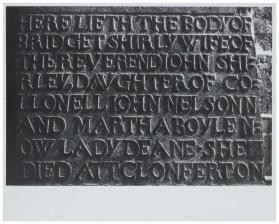 HERE LIETH THE BODY OF
BRIDGET SHIRLY WIFE OF
THE REVEREND IOHN SHI
RLEY DAVGHTER OF CO
LLONELL IOHN NELSONN
AND MARTHA BOYLE N
OW LADY DEANE SHEE
DIED ATT CLONFERT ON